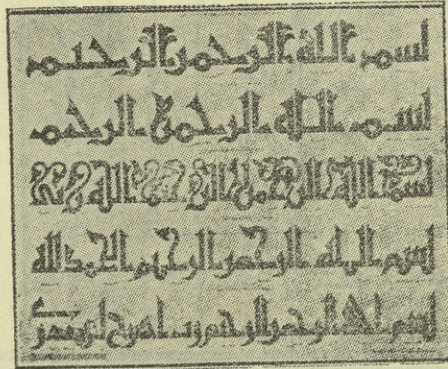 بسم الله الرحمن الرحيم
بسم الله الرحمن الرحيم
بسم الله الرحمن
بسم الله الرحمن الرحيم الحمد لله
بسم الله الرحمن الرحيم